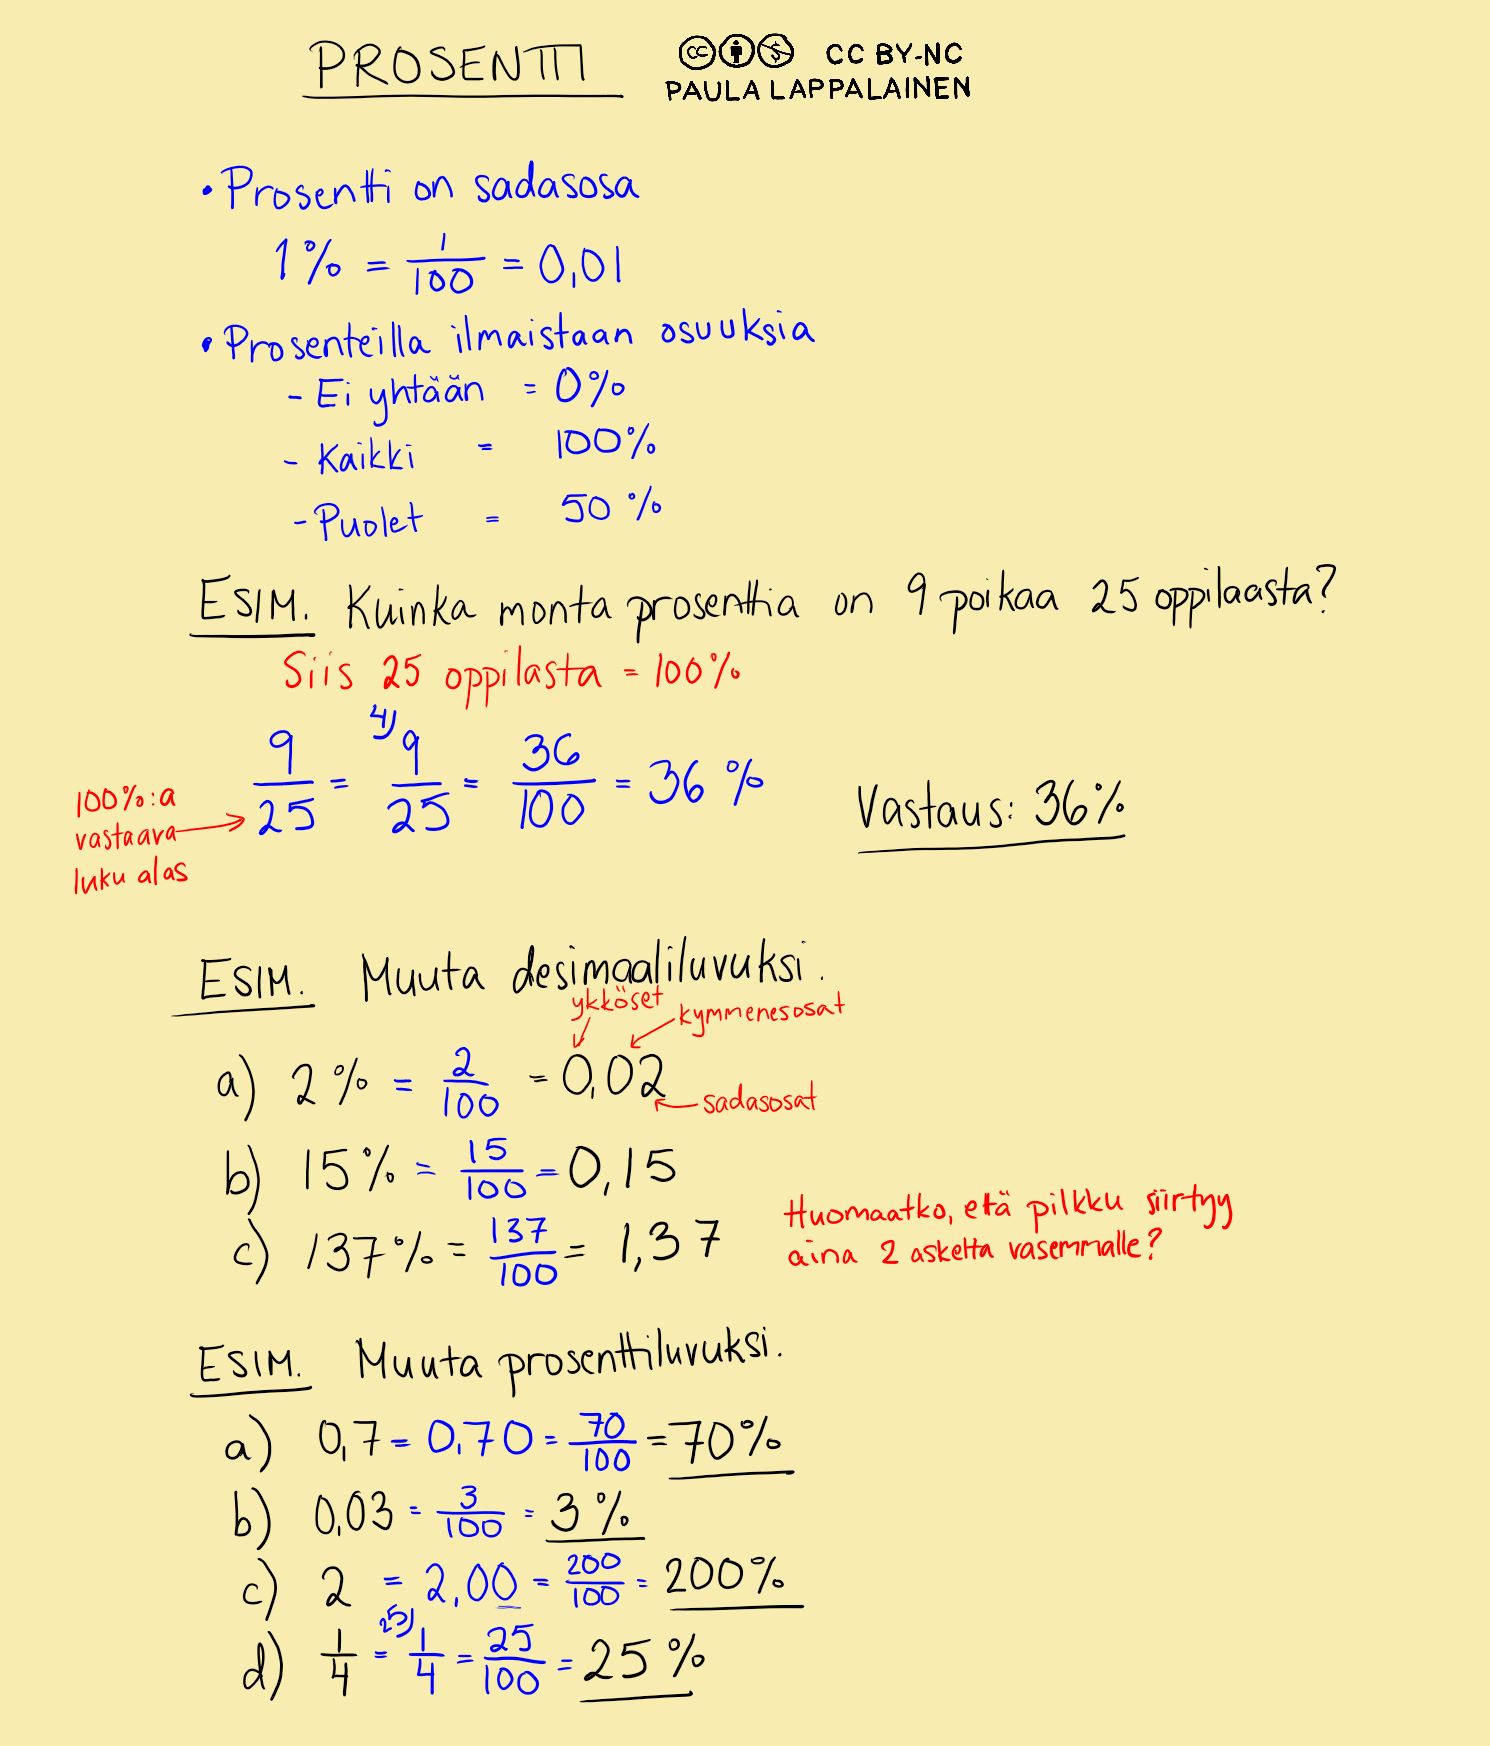 PROSENTTI
CC BY-NC
PAULA LAPPALAINEN
• Prosentti on sadasosa
1% = 1/100 = 0,01
• Prosenteilla ilmaistaan osuuksia
- Ei yhtään = 0%
- Kaikki = 100%
- Puolet = 50 %
ESIM. Kuinka monta prosenttia on 9 poikaa 25 oppilaasta?
Siis 25 oppilasta = 100%
9/25 = 4) 9/25 = 36/100 = 36 %
100%:a
vastaava
luku alas
Vastaus: 36%
ESIM. Muuta desimaaliluvuksi.
ykköset
kymmenesosat
a) 2% = 2/100 = 0,02
sadasosat
b) 15% = 15/100 = 0,15
c) 137% = 137/100 = 1,37
Huomaatko, että pilkku siirtyy
aina 2 askelta vasemmalle?
ESIM. Muuta prosenttiluvuksi.
a) 0,7 = 0,70 = 70/100 = 70%
b) 0,03 = 3/100 = 3%
c) 2 = 2,00 = 200/100 = 200%
d) 1/4 = 25) 1/4 = 25/100 = 25%